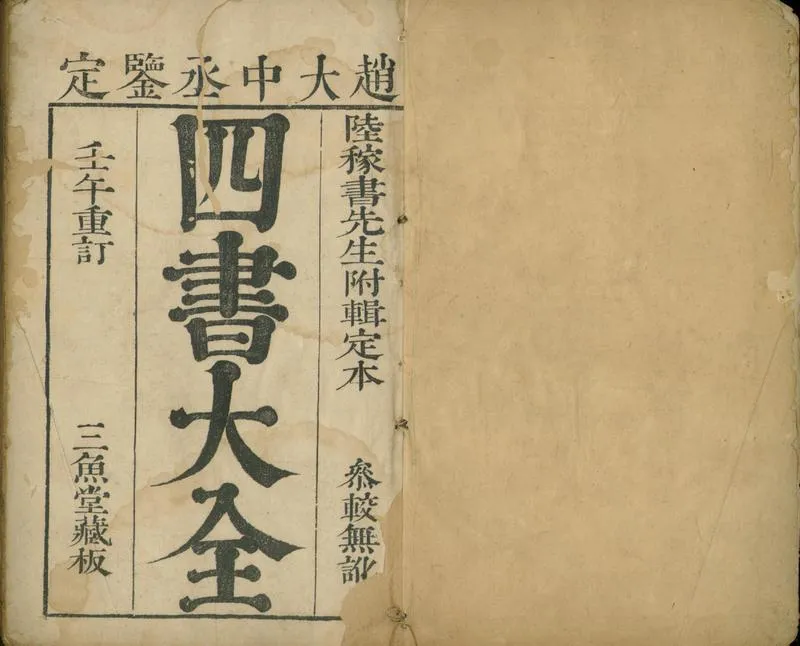 趙大中丞鑒定
陸稼書先生附輯定本 叅較無訛
四書大全
壬午重訂 三魚堂藏板